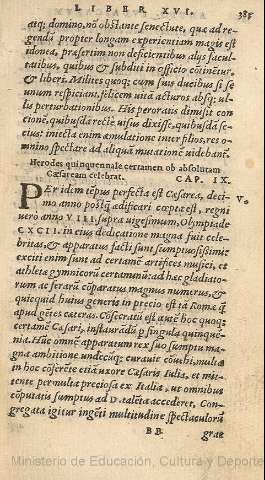 LIBER XVI. 385
atq; domino, nō obstante senectute, quæ ad re-
gendū propter longam experientiam magis est
idonea, præsertim non deficientibus alijs facul-
tatibus, quibus & subditi in officio cōtinētur,
& liberi. Milites quoq; cum suis ducibus si se
unum respiciant, felicem uitā acturos absq; ul-
lis perturbationibus. His peroratis dimisit con
cionē, quibusdā rectè uisus dixisse, quibusdā se-
cius: iniecta enim æmulatione inter filios, res o-
mnino spectare ad aliquā mutationē uidebant.
Herodes quinquennale certamen ob absolutam
Cæsaream celebrat. CAP. IX.
PEr idem tēpus perfecta est Cæsarea, deci-
mo anno postq̃ ædificari cœpta est, regni
uerò anno VIII. supra uigesimum, Olympiade
CXCII. in eius dedicatione magna fuit cele-
britas, & apparatus facti sunt sumptuosissimi:
exciti enim sunt ad certamē artifices musici, et
athletæ gymnicorū certaminū: ad hæc gladia-
torum ac ferarū cōparatus magnus numerus, &
quicquid huius generis in precio, est tā Romæ q̃
apud gētes cæteras. Cōsecratū est autē hoc quoq;
certamē Cæsari, instaurādū ꝑ singula quinquē-
nia. Huc omnē apparatum rex suo sumptu ma-
gna ambitione undecūq; curauit cōuehi, multa
in hoc cōferēte etiā uxore Cæsaris Iulia, et mit-
tente permulta preciosa ex Italia, ut omnibus
cōputatis sumptus ad D. talēta accederet. Con-
gregata igitur ingēti multitudine spectaculorū
V.
BB gratia
Ministerio de Educación, Cultura y Deporte